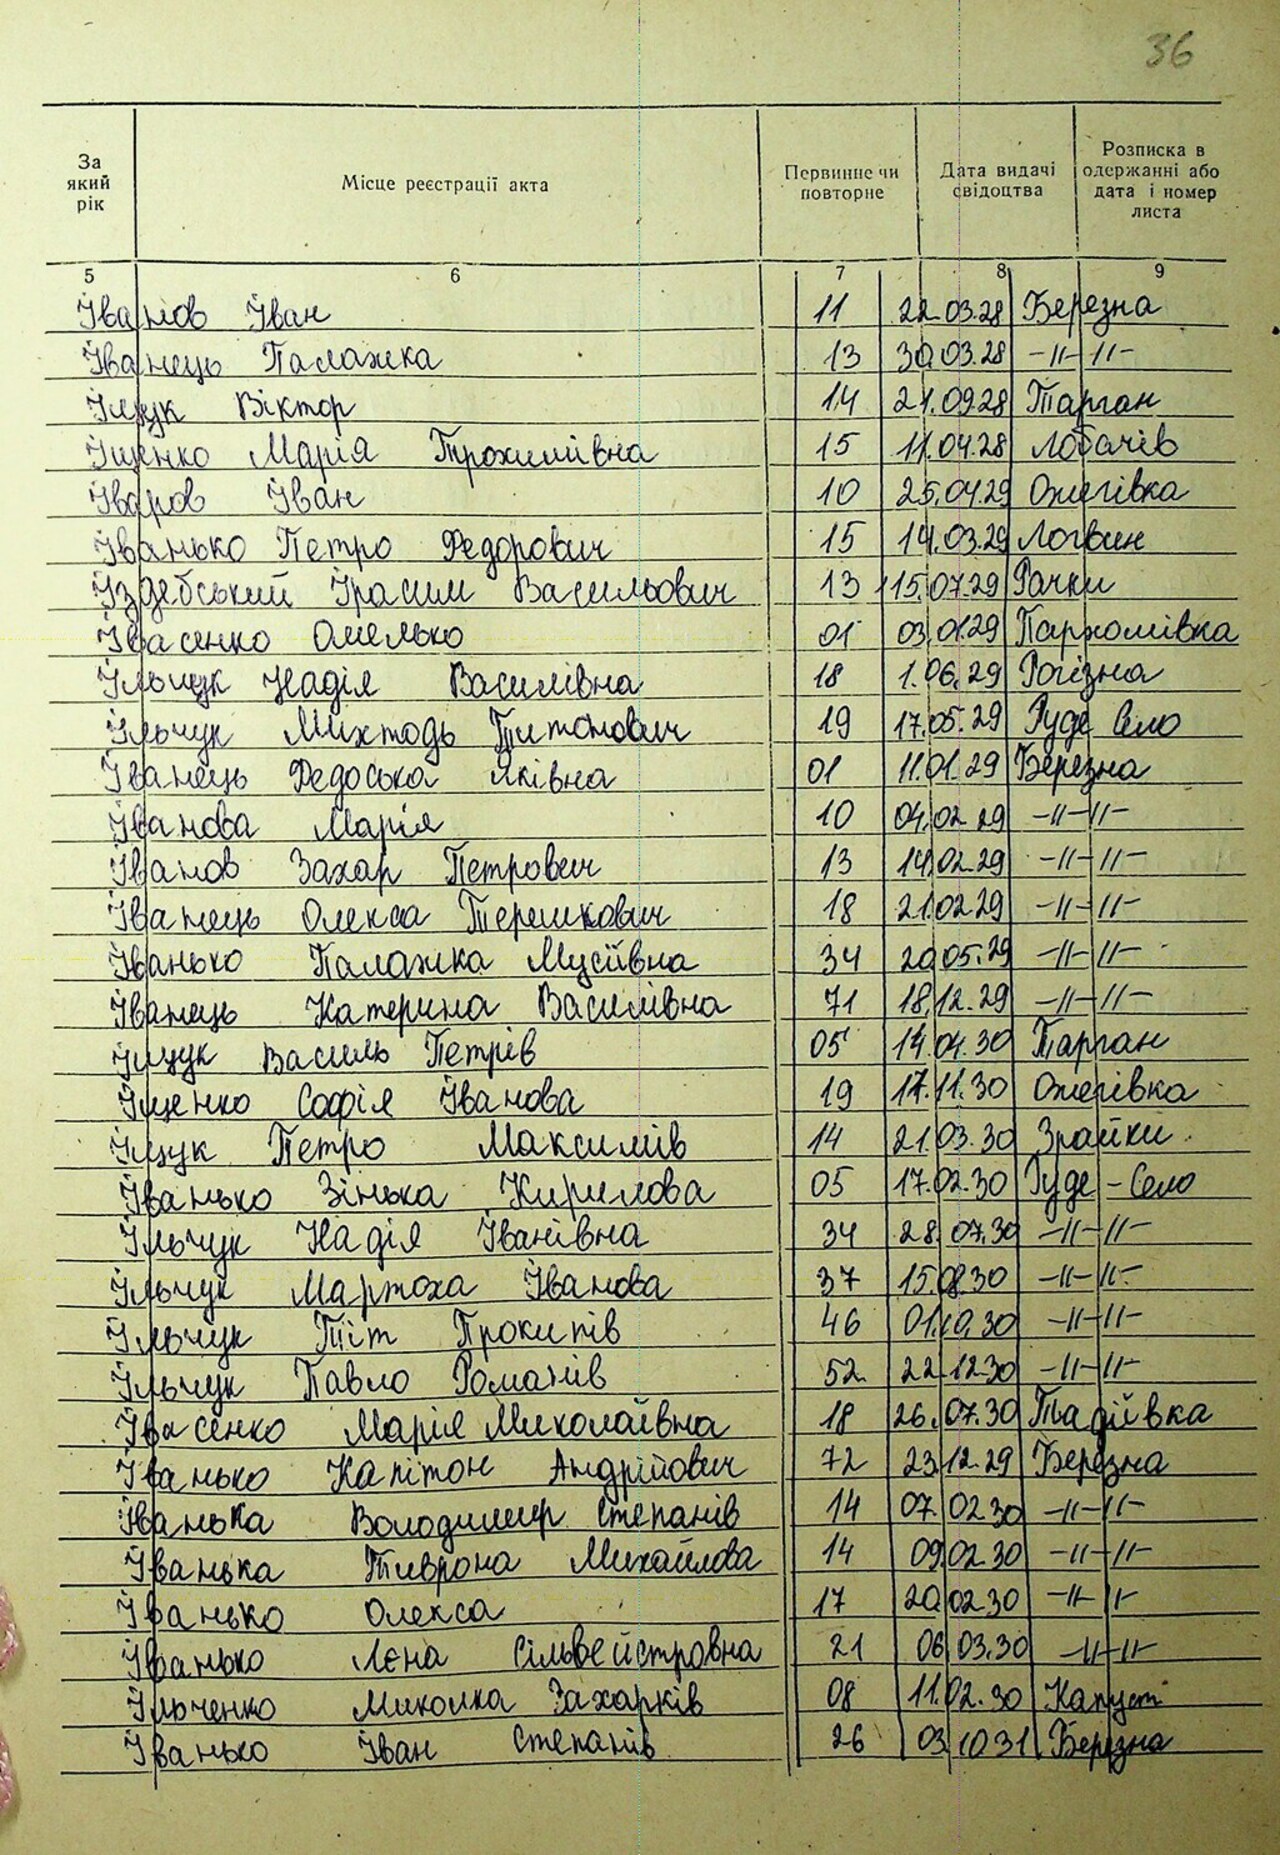 36
За який рік Місце реєстрації акта Первинне чи повторне Дата видачі свідоцтва Розписка в одержанні або дата і номер листа
5 6 7 8 9
Іванов Іван 11 22.03.28 Березна
Іванець Палажка 13 30.03.28 -11-11-
Іщук Віктор 14 21.09.28 Тарган
Іщенко Марія Трохимівна 15 11.04.28 Лобачів
Іваров Іван 10 25.04.29 Ожегівка
Іванько Петро Федорович 15 14.03.29 Логвин
Іздебський Ірасим Васильович 13 15.07.29 Рачки
Івасенко Омелько 01 03.01.29 Пархомівка
Ільчук Надія Василівна 18 1.06.29 Рогізна
Ільчук Михтодь Титонович 19 17.05.29 Руде Село
Іванець Федоська Яківна 01 11.01.29 Березна
Іванова Марія 10 04.02 29 -11-11-
Іванов Захар Петрович 13 14.02.29 -11-11-
Іванець Олекса Терешкович 18 21.02 29 -11-11-
Іванько Палажка Мусіївна 34 20.05.29 -11-11-
Іванець Катерина Василівна 71 18.12.29 -11-11-
Іщук Василь Петрів 05 14.04.30 Тарган
Іщенко Софія Іванова 19 17.11.30 Ожегівка
Іщук Петро Максимів 14 21.03.30 Зрайки
Іванько Зінька Кирилова 05 17.02.30 Руде-Село
Ільчук Надія Іванівна 34 28.07.30 -11-11-
Ільчук Мартоха Іванова 37 15.08.30 -11-11-
Ільчук Тіт Прокипів 46 01.10.30 -11-11-
Ільчук Павло Романів 52 22.12.30 -11-11-
Івасенко Марія Миколаївна 18 26.07.30 Тадіївка
Іванько Капітон Андрійович 72 23.12.29 Березна
Іванька Володимир Степанів 14 07.02.30 -11-11-
Іванька Михайлова 14 09.02.30 -11-11-
Іванько Олекса 17 20.02.30 -11-11-
Іванько Лєна Сільвейстровна 21 06.03.30 -11-11-
Ільченко Миколка Захарків 08 11.02.30 Капуст
Іванько Іван Степанів 26 03.10 31 Березна